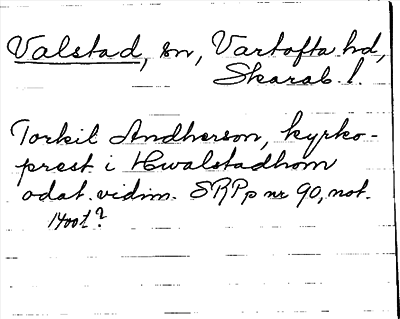 Valstad, sn, Vartofta hd,
Skarab. l.
Torkil Andherson, kyrko-
prest i Hwalstadhom
odat. vidim. SRPp nr 90, not.
1400t?